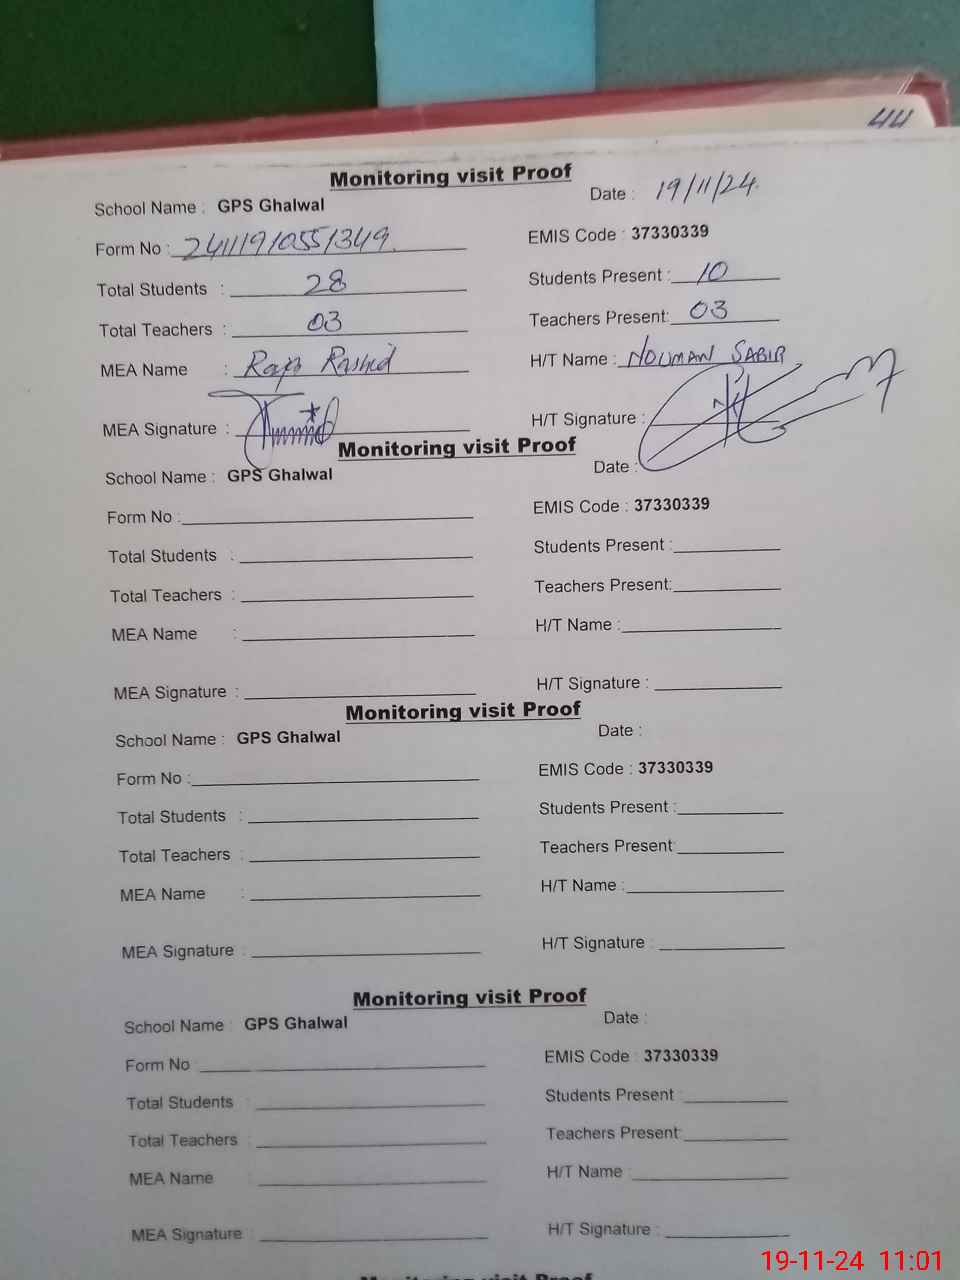 44
Monitoring visit Proof
School Name : GPS Ghalwal Date : 19/11/24.
Form No : 24111910551349. EMIS Code : 37330339
Total Students : 28 Students Present : 10
Total Teachers : 03 Teachers Present: 03
MEA Name : Raja Rashid H/T Name : NOUMAN SABIR
MEA Signature : H/T Signature :
Monitoring visit Proof
School Name : GPS Ghalwal Date :
Form No : EMIS Code : 37330339
Total Students : Students Present :
Total Teachers : Teachers Present:
MEA Name : H/T Name :
MEA Signature : H/T Signature :
Monitoring visit Proof
School Name : GPS Ghalwal Date :
Form No : EMIS Code : 37330339
Total Students : Students Present :
Total Teachers : Teachers Present:
MEA Name : H/T Name :
MEA Signature : H/T Signature :
Monitoring visit Proof
School Name : GPS Ghalwal Date :
Form No EMIS Code : 37330339
Total Students : Students Present
Total Teachers : Teachers Present:
MEA Name : H/T Name :
MEA Signature : H/T Signature :
19-11-24 11:01
Monitoring visit Proof